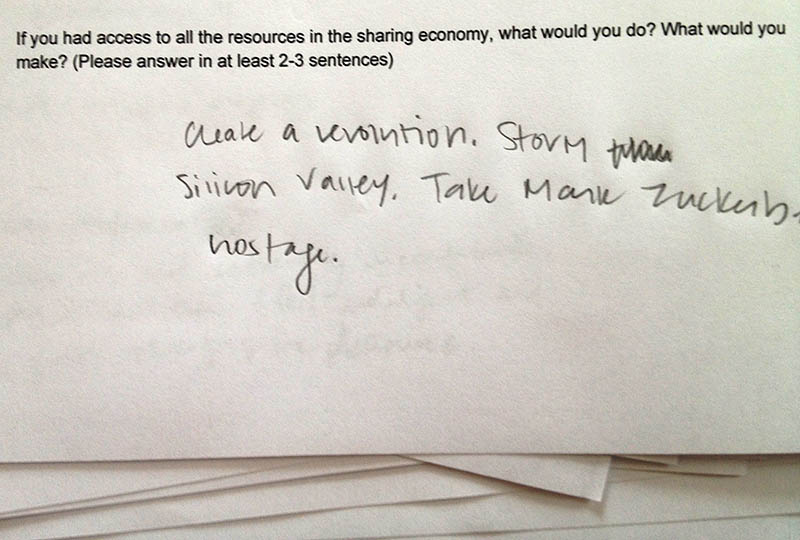 If you had access to all the resources in the sharing economy, what would you do? What would you
make? (Please answer in at least 2-3 sentences)
Create a revolution. Storm
Silicon Valley. Take Mark Zuckerb
hostage.